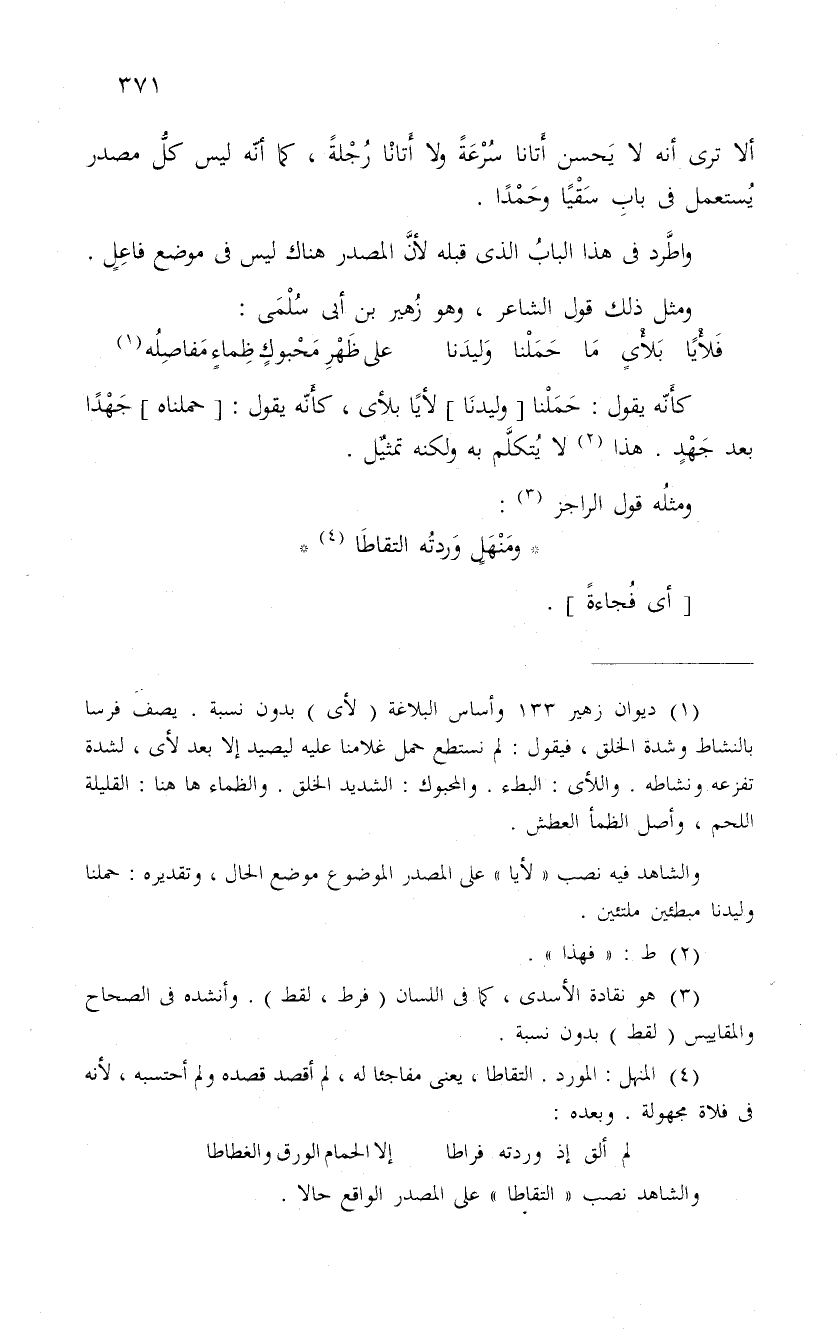 ٣٧١
ألا ترى أنه لا يَحسن أَتانا سُرْعَةً ولا أَتانْا رُجْلةً ، كما أنّه ليس كلُّ مصدر
يُستعمل فى بابِ سَقْيًا وحَمْدًا .
واطَّرد فى هذا البابُ الذى قبله لأنَّ المصدر هناك ليس فى موضع فاعِلٍ .
ومثل ذلك قول الشاعر ، وهو زُهير بن أبى سُلْمَى :
فَلأْيًا بَلأْيٍ مَا حَمَلْنا وَليدَنا على ظَهْرِ مَحْبوكٍ ظِماءٍ مَفاصِلُه (١)
كأَنّه يقول : حَمَلْنا [ وليدنَا ] لأيًا بلأى ، كأَنّه يقول : [ حملناه ] جَهْدًا
بعد جَهْدٍ . هذا (٢) لا يُتكلَّم به ولكنه تمثيٌل .
ومثلُه قول الراجز (٣) :
* ومَنْهَلٍ وَردتُه التقاطَا (٤) *
[ أى فُجاءةً ] .
(١) ديوان زهير ١٣٣ وأساس البلاغة ( لأى ) بدون نسبة . يصف فرسا
بالنشاط وشدة الخلق ، فيقول : لم نستطع حمل غلامنا عليه ليصيد إلا بعد لأى ، لشدة
تفزعه ونشاطه . واللأى : البطء . والمحبوك : الشديد الخلق . والظماء ها هنا : القليلة
اللحم ، وأصل الظمأ العطش .
والشاهد فيه نصب « لأيا » على المصدر الموضوع موضع الحال ، وتقديره : حملنا
وليدنا مبطئين ملتئين .
(٢) ط : « فهذا » .
(٣) هو نقادة الأسدى ، كما فى اللسان ( فرط ، لقط ) . وأنشده فى الصحاح
والمقاييس ( لقط ) بدون نسبة .
(٤) المنهل : المورد . التقاطا ، يعنى مفاجئا له ، لم أقصد قصده ولم أحتسبه ، لأنه
فى فلاة مجهولة . وبعده :
لم ألق إذ وردته فراطا إلا الحمام الورق والغطاطا
والشاهد نصب « التقاطا » على المصدر الواقع حالا .